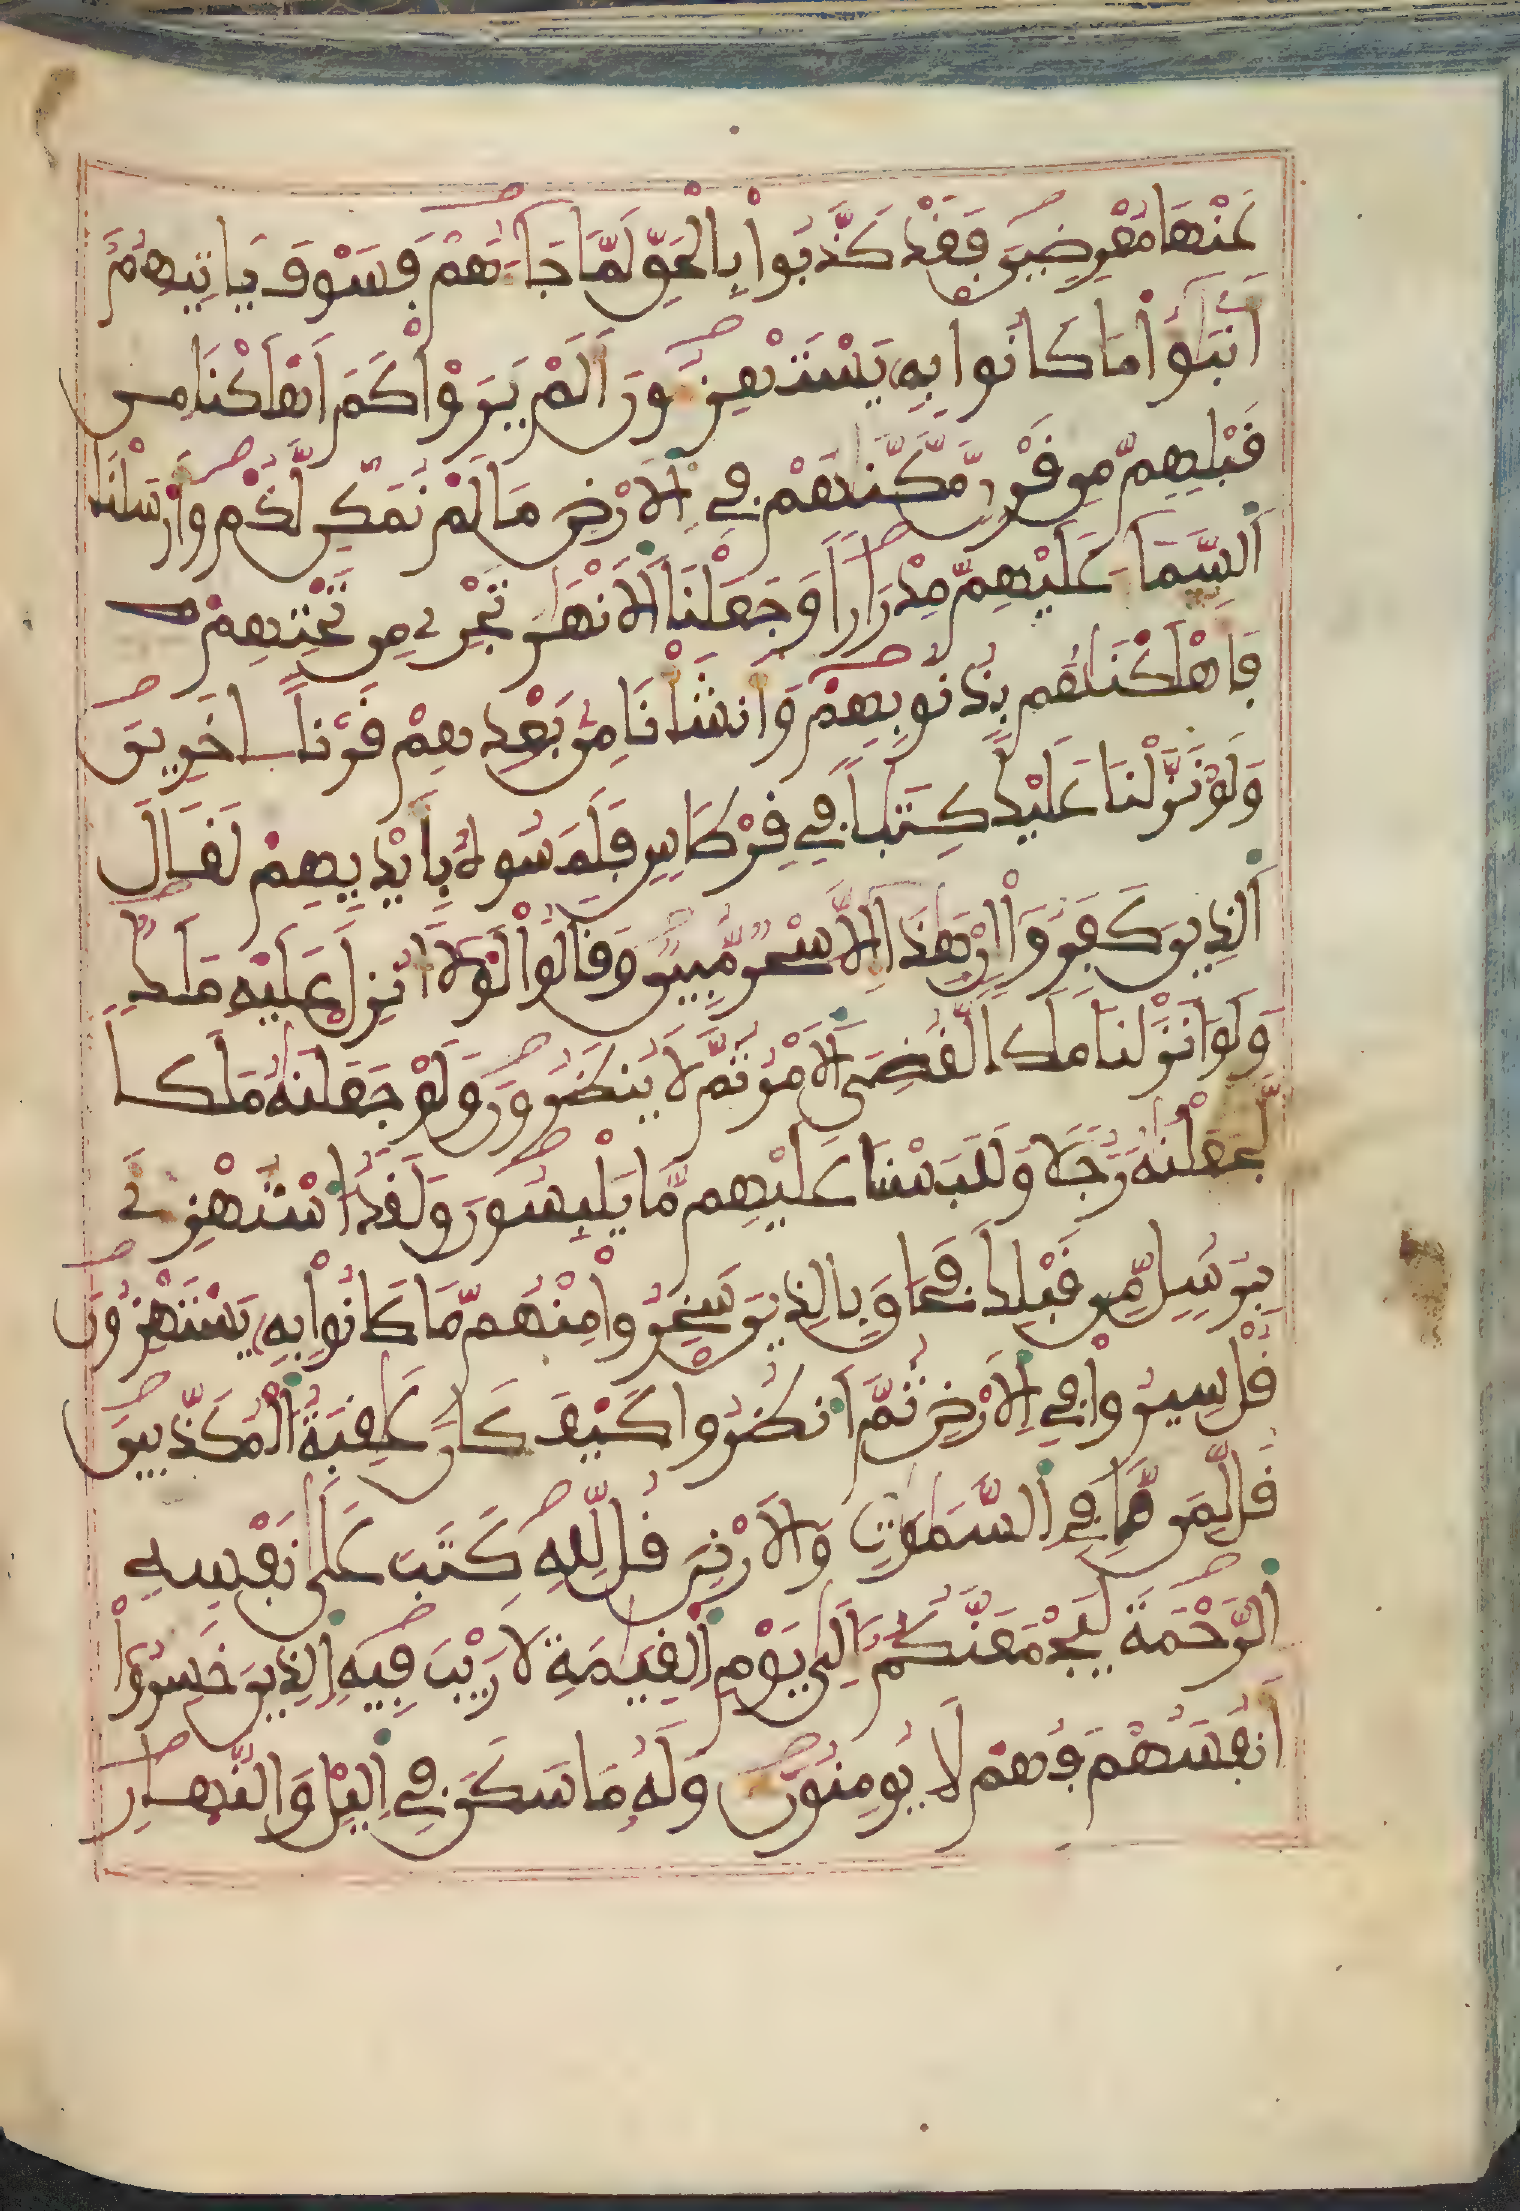 عَنْهَا مُعْرِضِينَ فَقَدْ كَذَّبُوا۟ بِالْحَقِّ لَمَّا جَآءَهُمْ فَسَوْفَ يَاتِيهِمُۥٓ
أَنۢبَٰٓؤُا۟ مَا كَانُوا۟ بِهِۦ يَسْتَهْزِءُونَ أَلَمْ يَرَوْا۟ كَمَ اَهْلَكْنَا مِن
قَبْلِهِم مِّن قَرْنٖ مَّكَّنَّٰهُمْ فِے اِ۬لَارْضِ مَا لَمْ نُمَكِّن لَّكُمْ وَأَرْسَلْنَا
اَ۬لسَّمَآءَ عَلَيْهِم مِّدْرَاراٗ وَجَعَلْنَا اَ۬لَانْهَٰرَ تَجْرِے مِن تَحْتِهِمْ
فَأَهْلَكْنَٰهُم بِذُنُوبِهِمْ وَأَنشَأْنَا مِنۢ بَعْدِهِمْ قَرْناً اٰخَرِينَ
وَلَوْ نَزَّلْنَا عَلَيْكَ كِتَٰباٗ فِے قِرْطَاسٖ فَلَمَسُوهُ بِأَيْدِيهِمْ لَقَالَ
اَ۬لذِينَ كَفَرُوٓا۟ إِنْ هَٰذَآ إِلَّا سِحْرٞ مُّبِينٞ وَقَالُوا۟ لَوْلَآ أُنزِلَ عَلَيْهِ مَلَكٞ
وَلَوَ اَنزَلْنَا مَلَكاٗ لَّقُضِيَ اَ۬لَامْرُ ثُمَّ لَا يُنظَرُونَ وَلَوْ جَعَلْنَٰهُ مَلَكاٗ
لَّجَعَلْنَٰهُ رَجُلاٗ وَلَلَبَسْنَا عَلَيْهِم مَّا يَلْبِسُونَ وَلَقَدُ اُ۟سْتُهْزِۓَ
بِرُسُلٖ مِّن قَبْلِكَ فَحَاقَ بِالذِينَ سَخِرُوا۟ مِنْهُم مَّا كَانُوا۟ بِهِۦ يَسْتَهْزِءُونَ
قُلْ سِيرُوا۟ فِے اِ۬لَارْضِ ثُمَّ اَ۟نظُرُوا۟ كَيْفَ كَانَ عَٰقِبَةُ اُ۬لْمُكَذِّبِينَ
قُل لِّمَن مَّا فِے اِ۬لسَّمَٰوَٰتِ وَالَارْضِ قُل لِّلهِ كَتَبَ عَلَىٰ نَفْسِهِ
اِ۬لرَّحْمَةَ لَيَجْمَعَنَّكُمُۥٓ إِلَىٰ يَوْمِ اِ۬لْقِيَٰمَةِ لَا رَيْبَ فِيهِ اِ۬لذِينَ خَسِرُوٓا۟
أَنفُسَهُمْ فَهُمْ لَا يُومِنُونَ وَلَهُۥ مَا سَكَنَ فِے اِ۬ليْلِ وَالنَّهَارِ